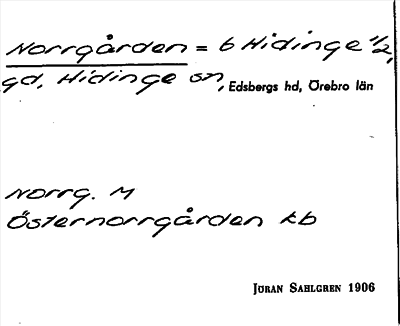 Norrgården = 6 Hidinge 1/2,
gd, Hidinge sn, Edsbergs hd, Örebro län
Norrg. M
Östernorrgården kb
JÖRAN SAHLGREN 1906